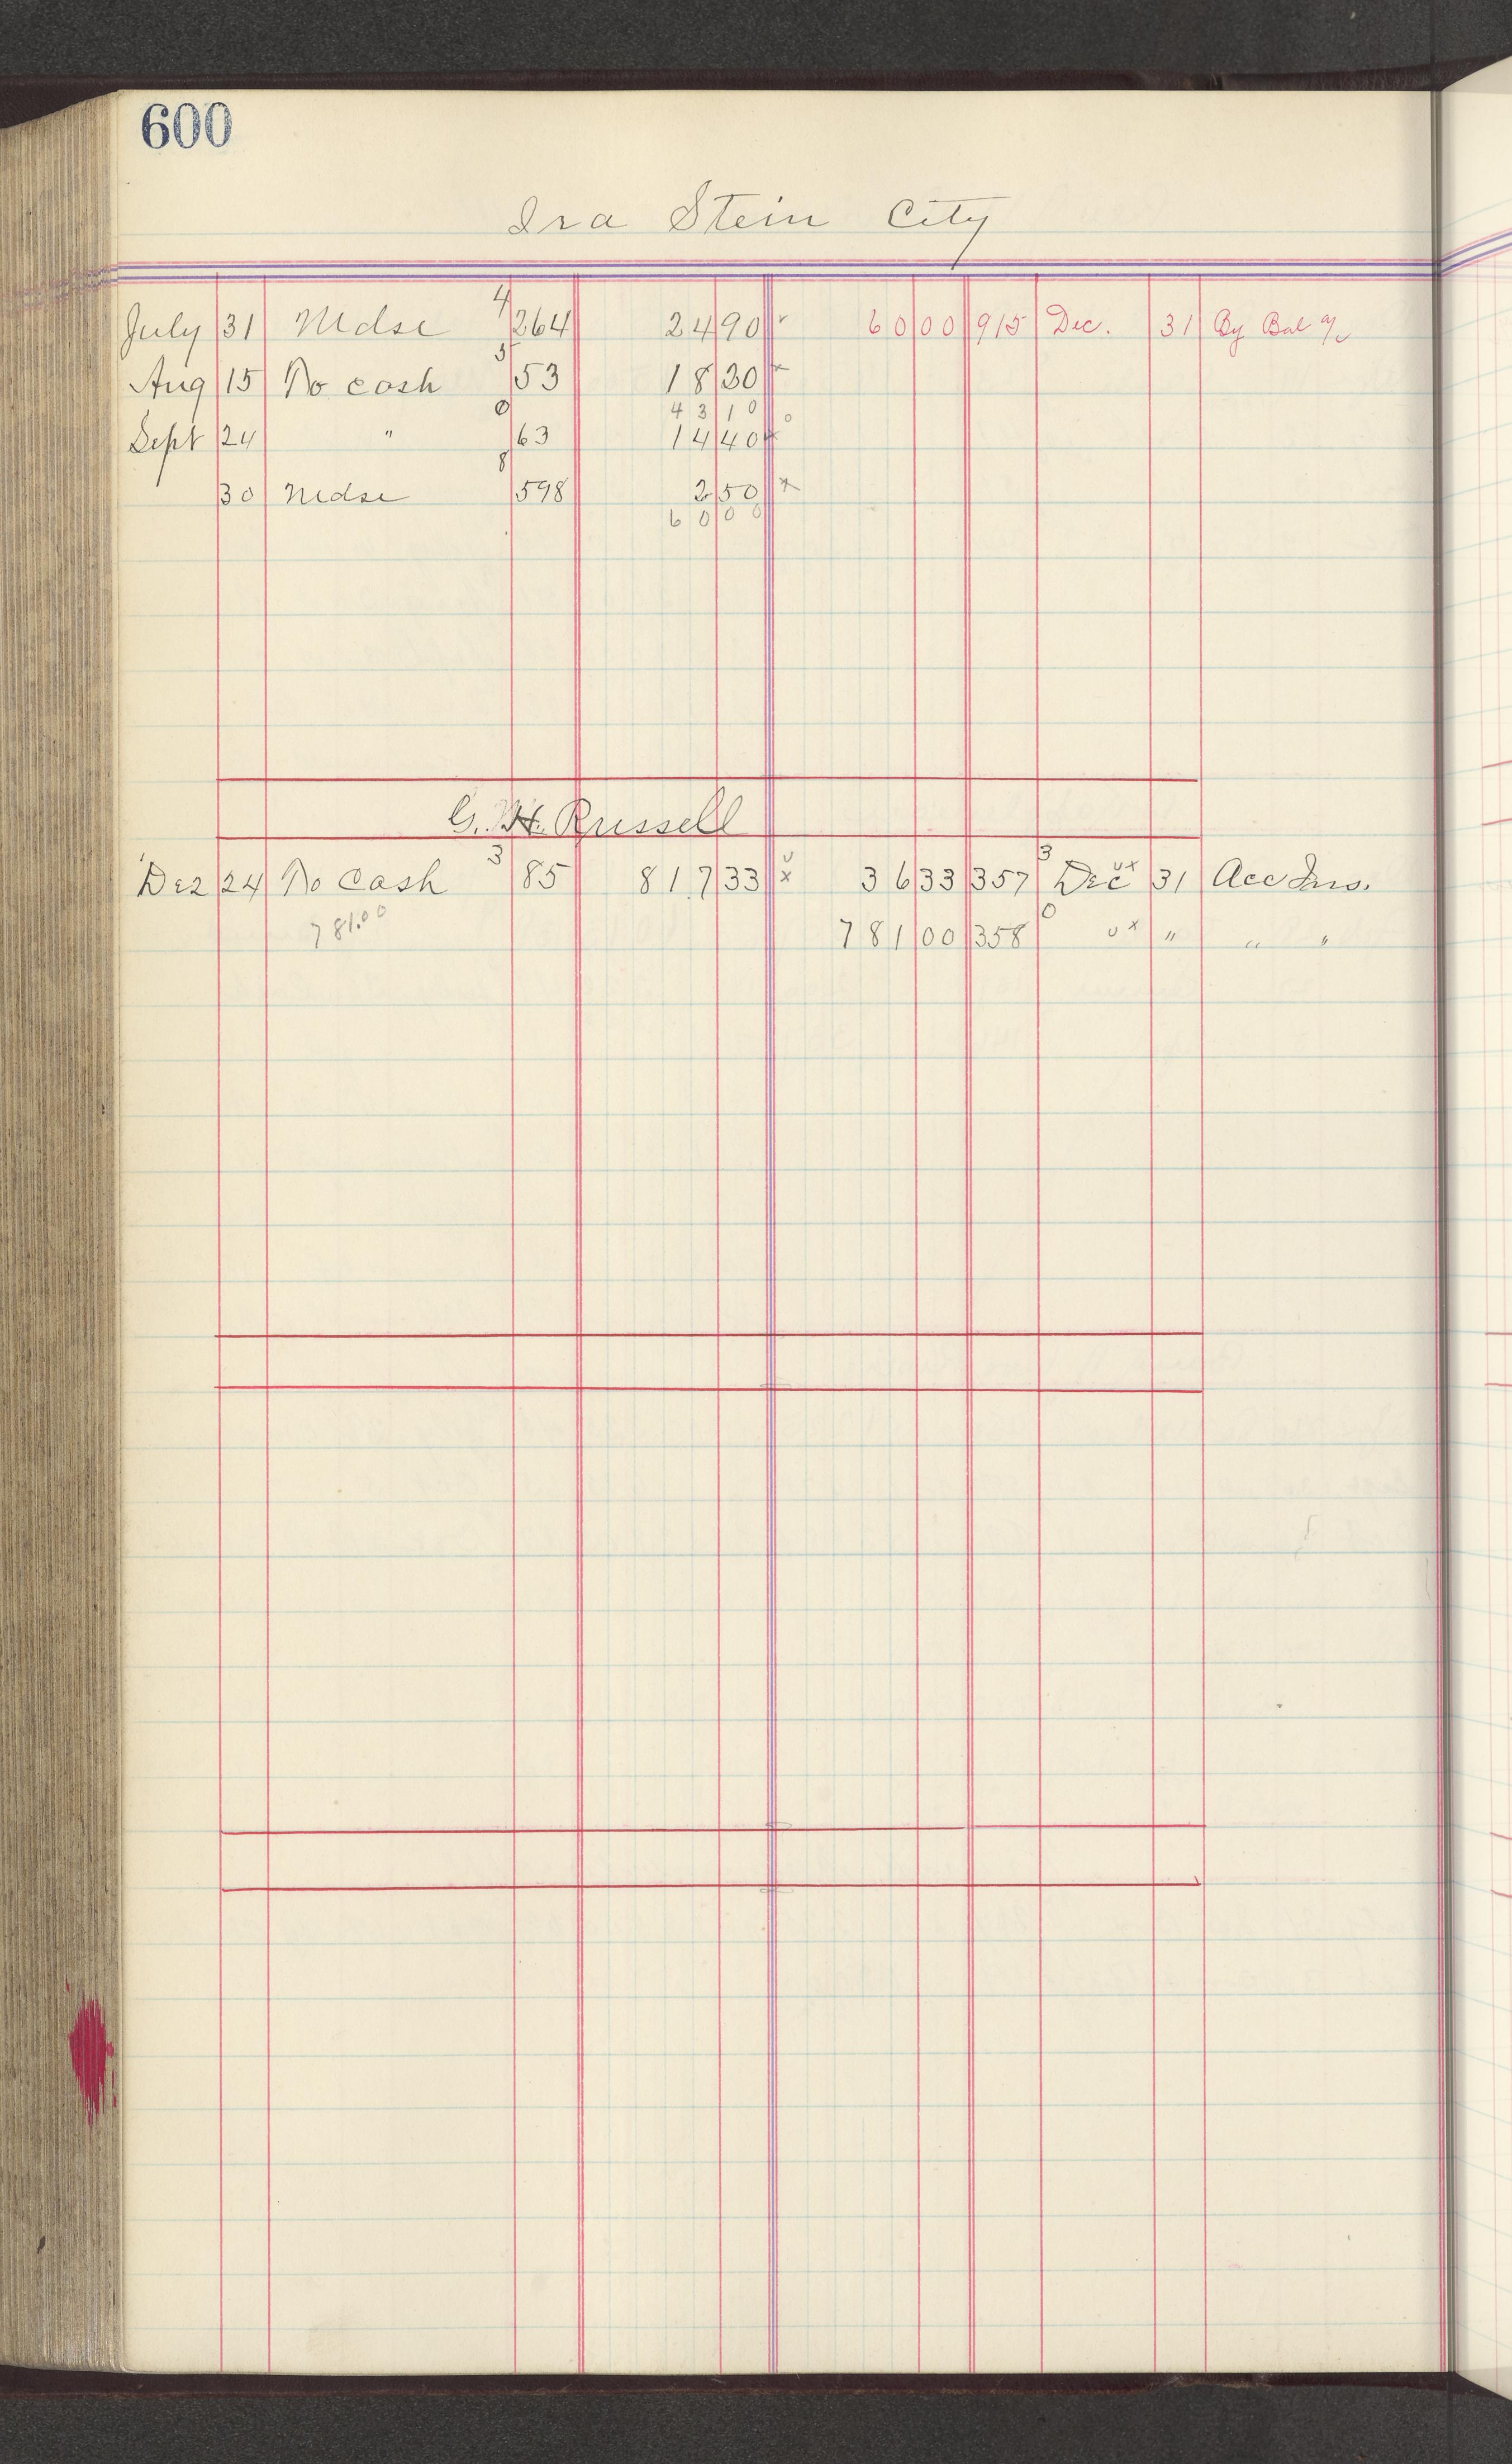 600
Ira Stein City
July 31 Mdse 4 264 24 90 60 00 915 Dec. 31 By Bal a/c
Aug 15 To cash 5 53 18 20 x
43 10
Sept 24 " 0 63 14 40 x
30 Mdse 8 598 2 50 x
60 00
G. H. Russell
Dec 24 To Cash 3 85 817 33 x 36 33 357 3 Dec x 31 Acc Ins.
781.00 781 00 358 0 x " " "